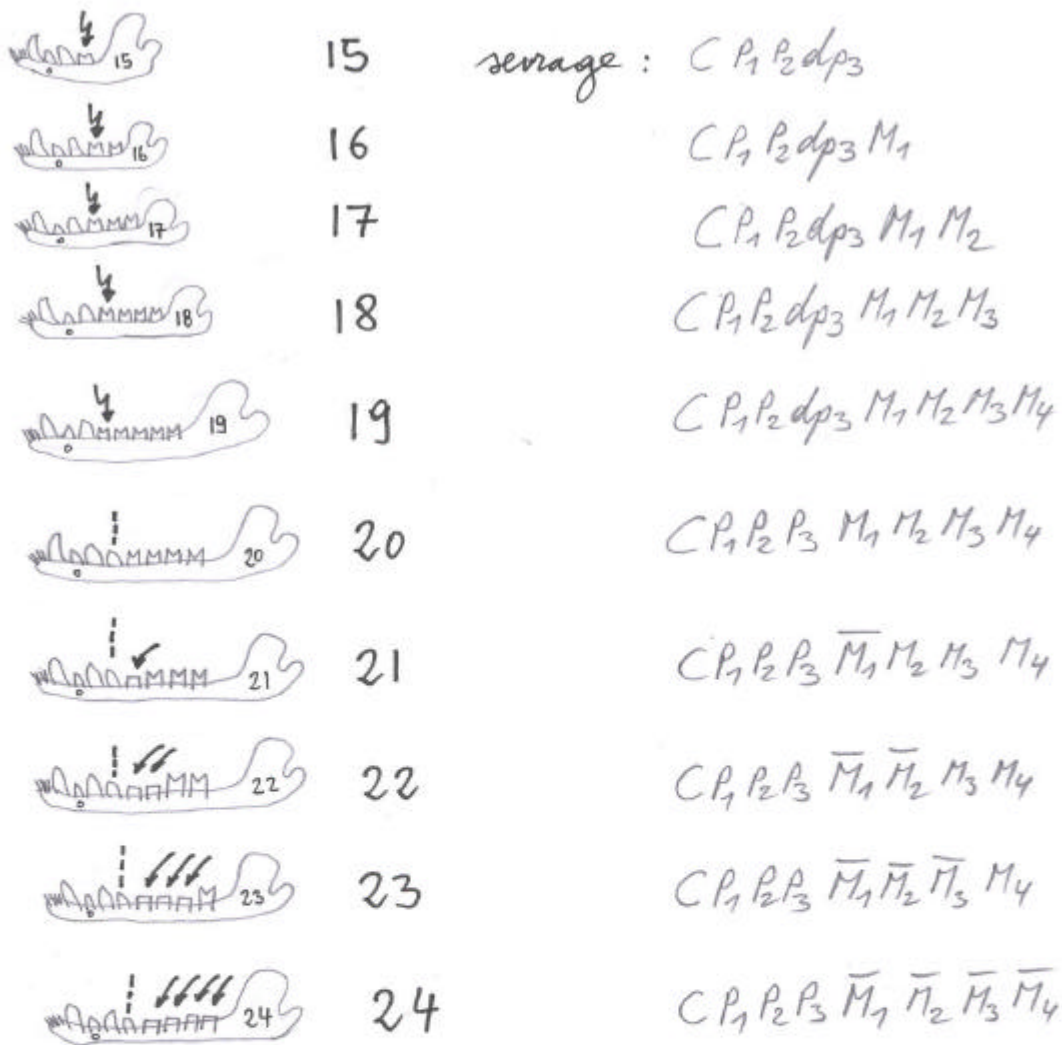 15 15 sevrage : C P₁ P₂ dp₃
16 16 C P₁ P₂ dp₃ M₁
17 17 C P₁ P₂ dp₃ M₁ M₂
18 18 C P₁ P₂ dp₃ M₁ M₂ M₃
19 19 C P₁ P₂ dp₃ M₁ M₂ M₃ M₄
20 20 C P₁ P₂ P₃ M₁ M₂ M₃ M₄
21 21 C P₁ P₂ P₃ M̅₁ M₂ M₃ M₄
22 22 C P₁ P₂ P₃ M̅₁ M̅₂ M₃ M₄
23 23 C P₁ P₂ P₃ M̅₁ M̅₂ M̅₃ M₄
24 24 C P₁ P₂ P₃ M̅₁ M̅₂ M̅₃ M̅₄